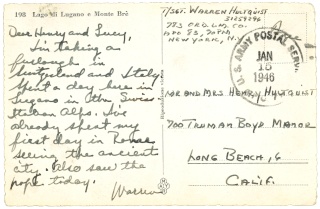 198 Lago di Lugano e Monte Brè
Dear Henry and Lucy,
I'm taking a
furlough in
Switzerland and Italy.
Spent a day here in
Lugano in the Swiss
Italian Alps. I've
already spent my
first day in Rome
seeing the ancient
city. Also saw the
pope today.
Warren
T/Sgt. Warren Hultquist
783 Ord. L.M. Co.
New York, N.Y.
U.S. ARMY POSTAL SERV.
JAN
15
1946
Mr and Mrs Henry Hultquist
700 Truman Boyd Manor
Long Beach, 6
Calif.